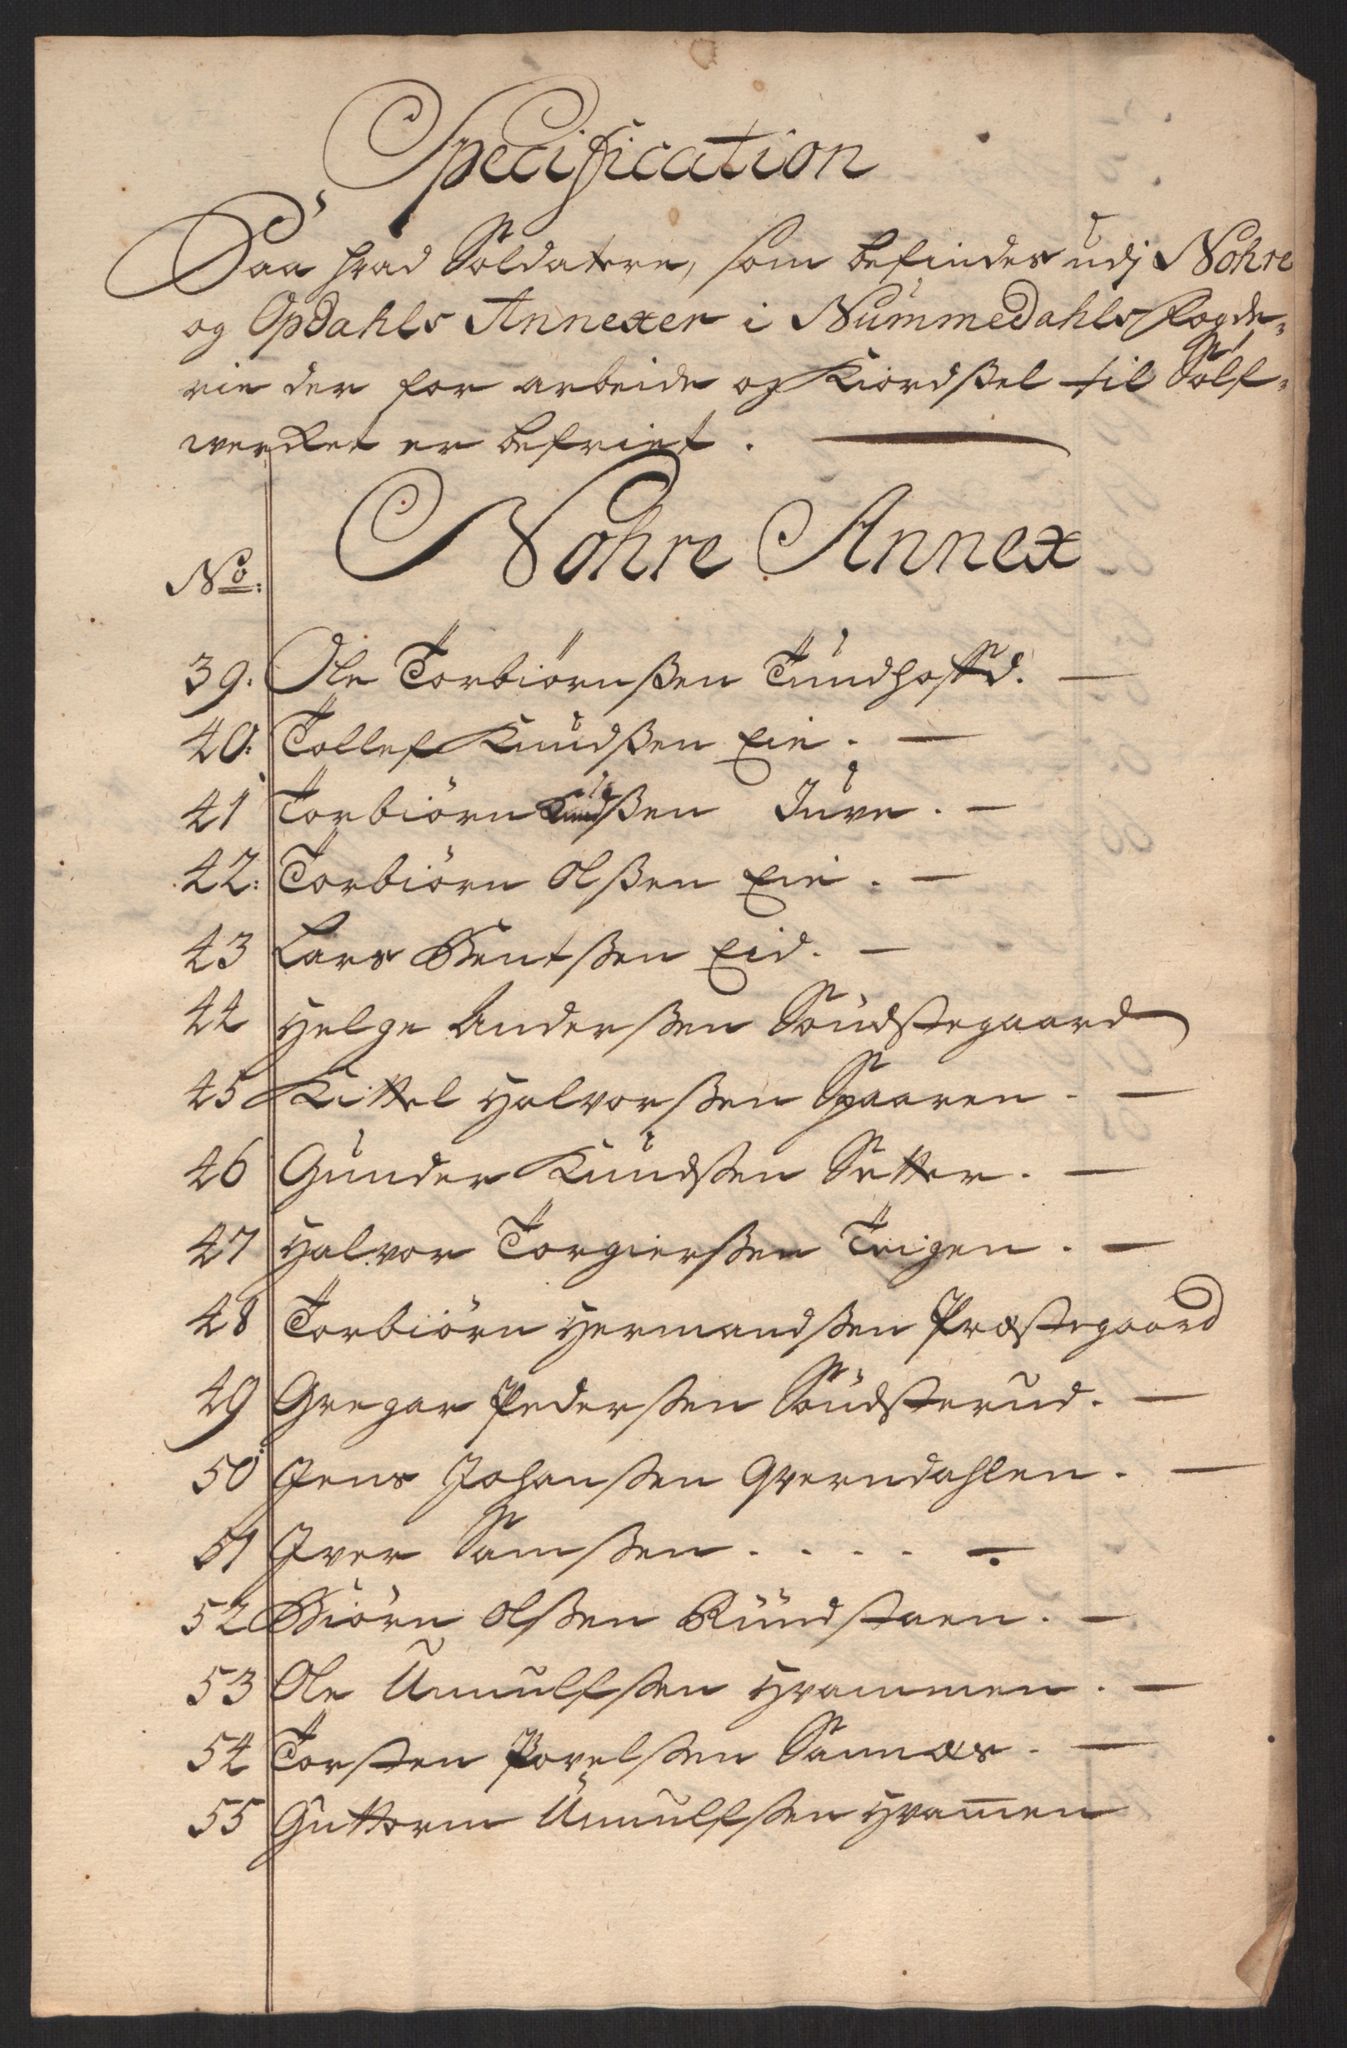 Specification
Paa hvad Soldatere, som befindes udj Nohre
og Opdahls Annexer i Nummedahls Fogde-
rie der for arbeide og Kiordsel til Sølf-
wercket er befriet.
Nohre Annex
No:
39. Ole Torbiørnßen Tundhoffd. —
40: Tollef Knudßen Eie. —
41 Torbiørn Knudßen Juve. —
42: Torbiørn Olßen Eie. —
43 Lars Bentßen Eid. —
44 Helge Anderßen Søndstegaard
45 Kittel Halvorßen Spaaren. —
46 Gunder Knudßen Setter. —
47 Halvor Torgierßen Teigen. —
48 Torbiørn Hermandßen Præstegaard
49 Gregar Pederßen Søndsterud. —
50 Jens Johanßen Qverndahlen. —
51 Iver Samßen . . . . —
52 Biørn Olßen Rundstaen. —
53 Ole Unnulfßen Hvammen. —
54 Torsten Povelßen Sannæs. —
55 Guttorm Unnulfßen Hvam̅en